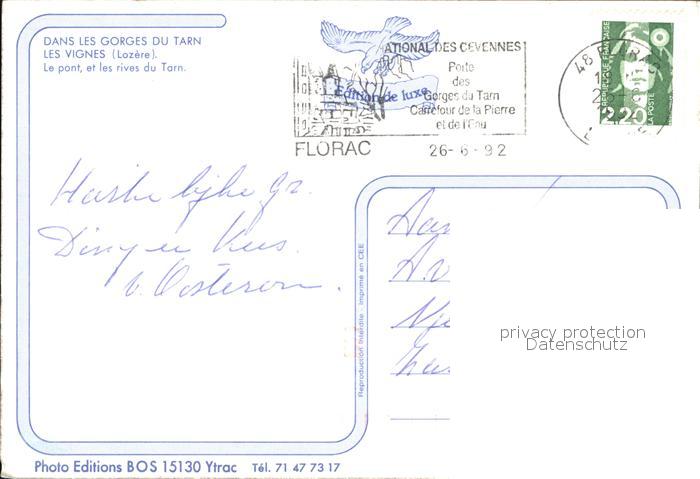 DANS LES GORGES DU TARN
LES VIGNES (Lozère).
Le pont, et les rives du Tarn.
Edition de luxe
ATIONAL DES CEVENNES
Porte
des
Gorges du Tarn
Carrefour de la Pierre
et de l'Eau
FLORAC 26-6-92
REPUBLIQUE FRANÇAISE
2,20
LA POSTE
Hartelijke gr.
v. Oosterom.
Aan
privacy protection
Datenschutz
Reproduction Interdite - Imprimé en CEE
Photo Editions BOS 15130 Ytrac Tél. 71 47 73 17